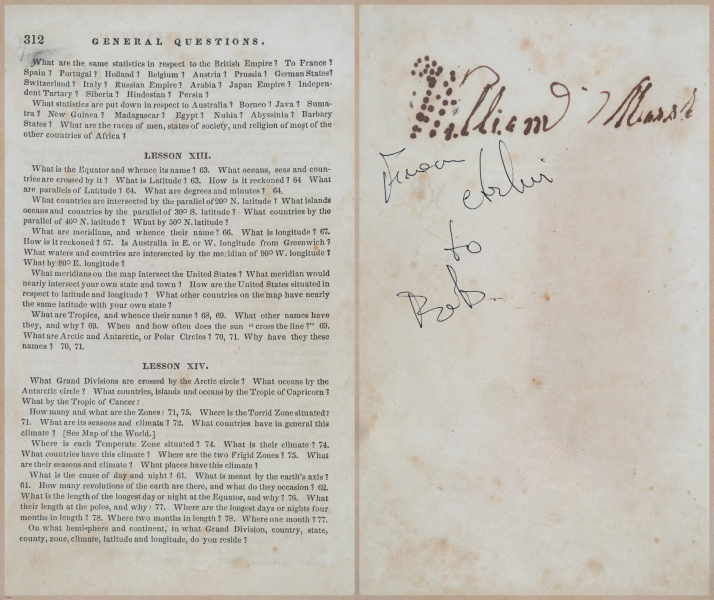 312 GENERAL QUESTIONS.
What are the same statistics in respect to the British Empire? To France?
Spain? Portugal? Holland? Belgium? Austria? Prussia? German States?
Switzerland? Italy? Russian Empire? Arabia? Japan Empire? Indepen-
dent Tartary? Siberia? Hindostan? Persia?
What statistics are put down in respect to Australia? Borneo? Java? Suma-
tra? New Guinea? Madagascar? Egypt? Nubia? Abyssinia? Barbary
States? What are the races of men, states of society, and religion of most of the
other countries of Africa?
LESSON XIII.
What is the Equator and whence its name? 63. What oceans, seas and coun-
tries are crossed by it? What is Latitude? 63. How is it reckoned? 64 What
are parallels of Latitude? 64. What are degrees and minutes? 64.
What countries are intersected by the parallel of 20° N. latitude? What islands
oceans and countries by the parallel of 30° S. latitude? What countries by the
parallel of 40° N. latitude? What by 50° N. latitude?
What are meridians, and whence their name? 66. What is longitude? 67.
How is it reckoned? 67. Is Australia in E. or W. longitude from Greenwich?
What waters and countries are intersected by the meridian of 90° W. longitude?
What by 80° E. longitude?
What meridians on the map intersect the United States? What meridian would
nearly intersect your own state and town? How are the United States situated in
respect to latitude and longitude? What other countries on the map have nearly
the same latitude with your own state?
What are Tropics, and whence their name? 68, 69. What other names have
they, and why? 69. When and how often does the sun "cross the line?" 69.
What are Arctic and Antarctic, or Polar Circles? 70, 71. Why have they these
names? 70, 71.
LESSON XIV.
What Grand Divisions are crossed by the Arctic circle? What oceans by the
Antarctic circle? What countries, islands and oceans by the Tropic of Capricorn?
What by the Tropic of Cancer?
How many and what are the Zones? 71, 75. Where is the Torrid Zone situated?
71. What are its seasons and climate? 72. What countries have in general this
climate? [See Map of the World.]
Where is each Temperate Zone situated? 74. What is their climate? 74.
What countries have this climate? Where are the two Frigid Zones? 75. What
are their seasons and climate? What places have this climate?
What is the cause of day and night? 61. What is meant by the earth's axis?
61. How many revolutions of the earth are there, and what do they occasion? 62.
What is the length of the longest day or night at the Equator, and why? 76. What
their length at the poles, and why? 77. Where are the longest days or nights four
months in length? 78. Where two months in length? 78. Where one month? 77.
On what hemisphere and continent, in what Grand Division, country, state,
county, zone, climate, latitude and longitude, do you reside?
William
From
to
Bob